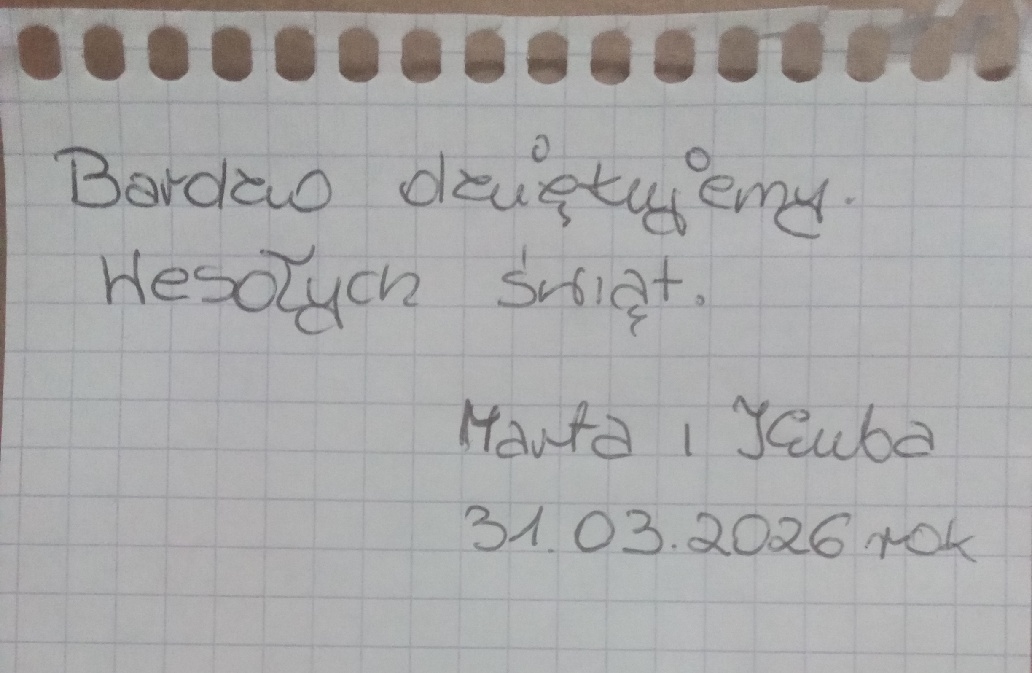 Bardzo dziękujemy.
Wesołych świąt.
Marta i Kuba
31.03.2026 rok